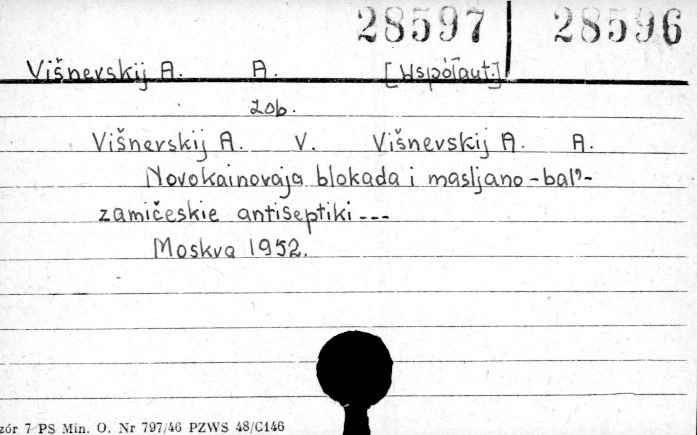 28597 28596
Višnevskij A. A. [Współaut.]
zob.
Višnevskij A. V. Višnevskij A. A.
Novokainovaja blokada i masljano-bal'-
zamičeskie antiseptiki ---
Moskva 1952.
zór 7 PS Min. O. Nr 797/46 PZWS 48/C146